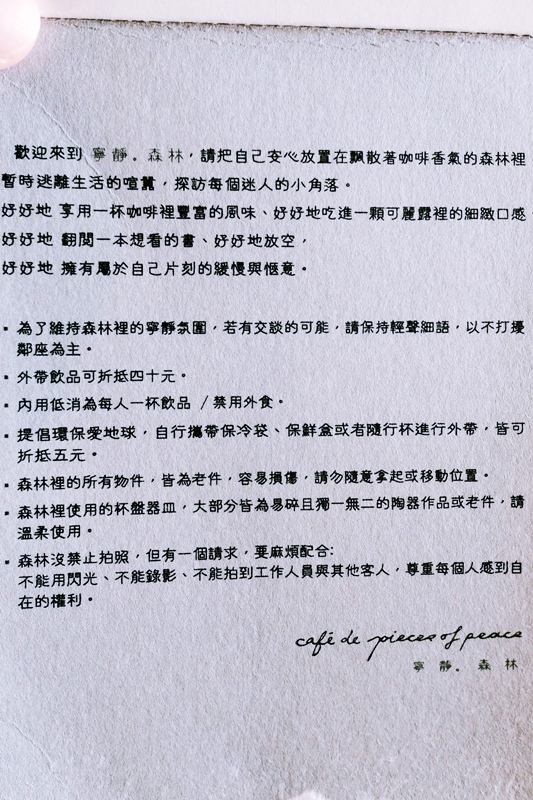 歡迎來到 寧靜。森林，請把自己安心放置在飄散著咖啡香氣的森林裡
暫時逃離生活的喧囂，探訪每個迷人的小角落。
好好地 享用一杯咖啡裡豐富的風味、好好地吃進一顆可麗露裡的細緻口感
好好地 翻閱一本想看的書、好好地放空，
好好地 擁有屬於自己片刻的緩慢與愜意。
▪ 為了維持森林裡的寧靜氛圍，若有交談的可能，請保持輕聲細語，以不打擾
鄰座為主。
▪ 外帶飲品可折抵四十元。
▪ 內用低消為每人一杯飲品 / 禁用外食。
▪ 提倡環保愛地球，自行攜帶保冷袋、保鮮盒或者隨行杯進行外帶，皆可
折抵五元。
▪ 森林裡的所有物件，皆為老件，容易損傷，請勿隨意拿起或移動位置。
▪ 森林裡使用的杯盤器皿，大部分皆為易碎且獨一無二的陶器作品或老件，請
溫柔使用。
▪ 森林沒禁止拍照，但有一個請求，要麻煩配合:
不能用閃光、不能錄影、不能拍到工作人員與其他客人，尊重每個人感到自
在的權利。
café de pieces of peace
寧靜。森林